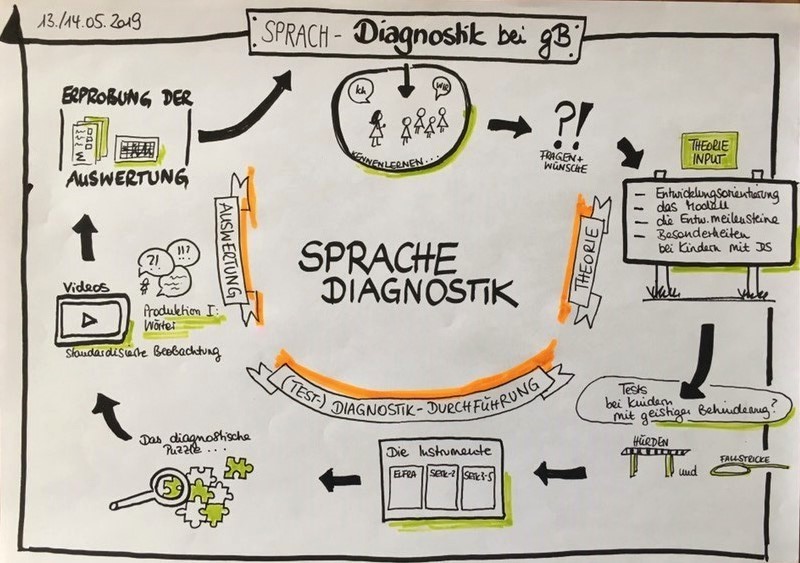 13./14.05.2019
SPRACH - Diagnostik bei gB
Ich
WIR
KENNENLERNEN...
?!
FRAGEN +
WÜNSCHE
THEORIE
INPUT
- Entwicklungsorientierung
- das Modell
- die Entw.meilensteine
- Besonderheiten
bei Kindern mit DS
Tests
bei Kindern
mit geistiger Behinderung?
HÜRDEN
und
FALLSTRICKE
Die Instrumente
ELFRA
SETK-2
SETK 3-5
Das diagnostische
Puzzle....
5
Videos
?!
!!?
Produktion I:
Wörter
Standardisierte Beobachtung
ERPROBUNG DER
AUSWERTUNG
SPRACHE
DIAGNOSTIK
THEORIE
(TEST-) DIAGNOSTIK-DURCHFÜHRUNG
AUSWERTUNG